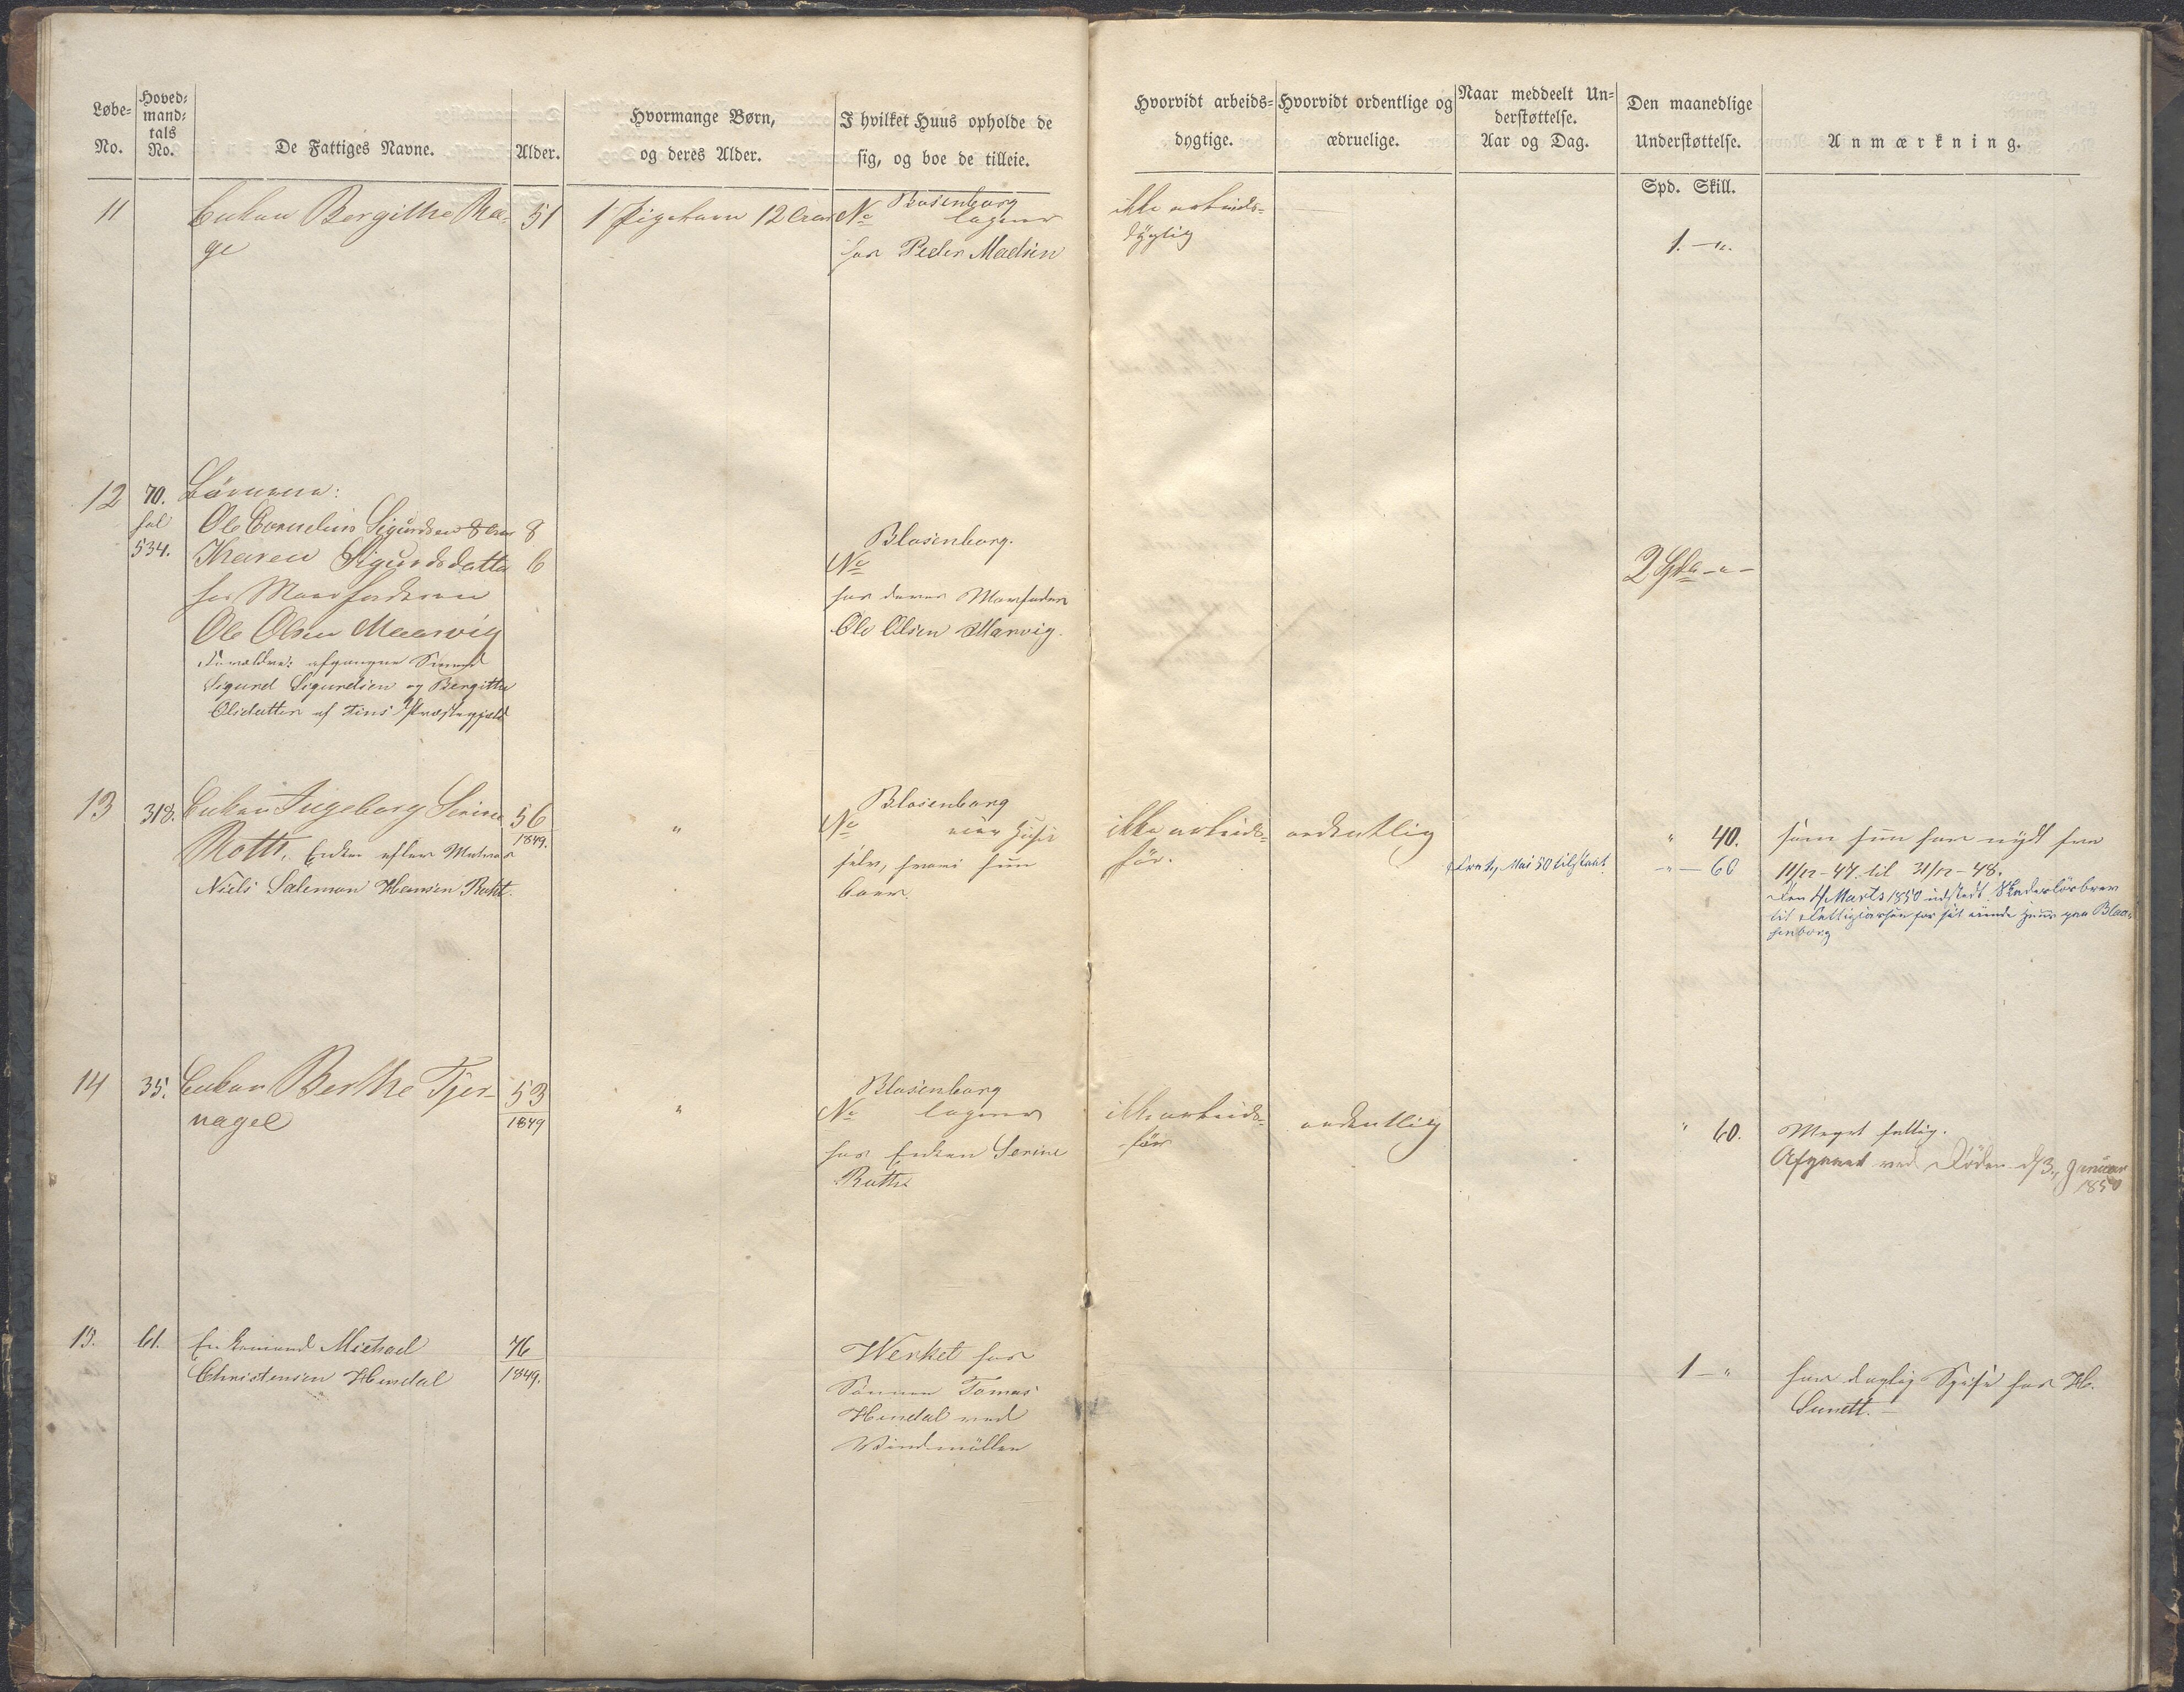 Løbe-
No.
Hoved-
mand-
tals
No.
De Fattiges Navne.
Alder.
Hvormange Børn,
og deres Alder.
I hvilket Huus opholde de
sig, og boe de tilleie.
Hvorvidt arbeids-
dygtige.
Hvorvidt ordentlige og
ædruelige.
Naar meddeelt Un-
derstøttelse.
Aar og Dag.
Den maanedlige
Understøttelse.
Spd. Skill.
Anmærkning.
11
Enken Bergithe
51
1 Pigebarn 12 Aar
No Blosenborg
logerer
hos Peder Madsen
ikke arbeids-
dygtig
1. — ".
12
70.
fol
534.
Børnene:
Ole Cornelius Sigurdsen 8 Aar 8
Karen Sigurdsdatter 6
hos Morfaderen
Ole Olsen Maarvig
Forældre: afgangne Smed
Sigurd Sigurdsen og Bergitte
Olsdatter af Tins Præstegjæld
Blosenborg.
No
hos deres Morfader
Ole Olsen Marvig.
2 Spd - " -
13
318.
Enken Ingeborg Serine
Rotts, Enke efter Matros
Niels Salemon Hansen Rott.
56
1849.
"
Blosenborg
No eier Huset
selv, hvori hun
boer.
ikke arbeids-
før.
ordentlig
Fra 1/ Mai 50 tilstaaet.
" 40.
- " - 60
som hun har nydt fra
11/12 - 47. til 31/12 - 48.
Den 4/ Marts 1850 udstedt Skadesløsbrev
til Fattigkassen for sit eiende Huus paa Blaa-
senborg
14
35.
Enken Berthe Tjer-
nagel
53
1849
"
Blosenborg
No logerer
hos Enken Serine
Rotts
ikke arbeids-
før
ordentlig
" 60.
Meget fattig.
Afgaaet ved Døden d. 3. Januar
1850
15.
61.
Enkemand Michael
Christensen Hemdal
76
1849.
Werket hos
Sønnen Tomas
Hemdal ved
Vindmøllen
1 — "
har daglig Spise hos H.
Sundt. —